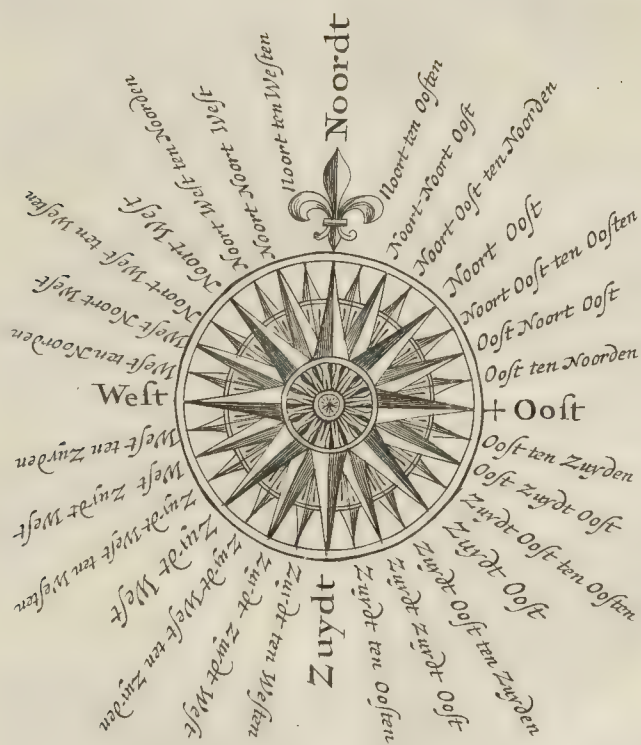 Noordt
Noort ten Ooſten
Noort-Noort Ooſt
Noort-Ooſt ten Noorden
Noort Ooſt
Noort Ooſt ten Ooſten
Ooſt Noort Ooſt
Ooſt ten Noorden
Ooſt
Ooſt ten Zuyden
Ooſt Zuydt Ooſt
Zuydt Ooſt ten Ooſten
Zuydt Ooſt
Zuydt Ooſt ten Zuyden
Zuydt Zuydt Ooſt
Zuydt ten Ooſten
Zuydt
Zuydt ten Weſten
Zuydt Zuydt Weſt
Zuydt Weſt ten Zuyden
Zuydt Weſt
Zuydt Weſt ten Weſten
Weſt Zuydt Weſt
Weſt ten Zuyden
Weſt
Weſt ten Noorden
Weſt Noort Weſt
Noort Weſt ten Weſten
Noort Weſt
Noort Weſt ten Noorden
Noort-Noort Weſt
Noort ten Weſten